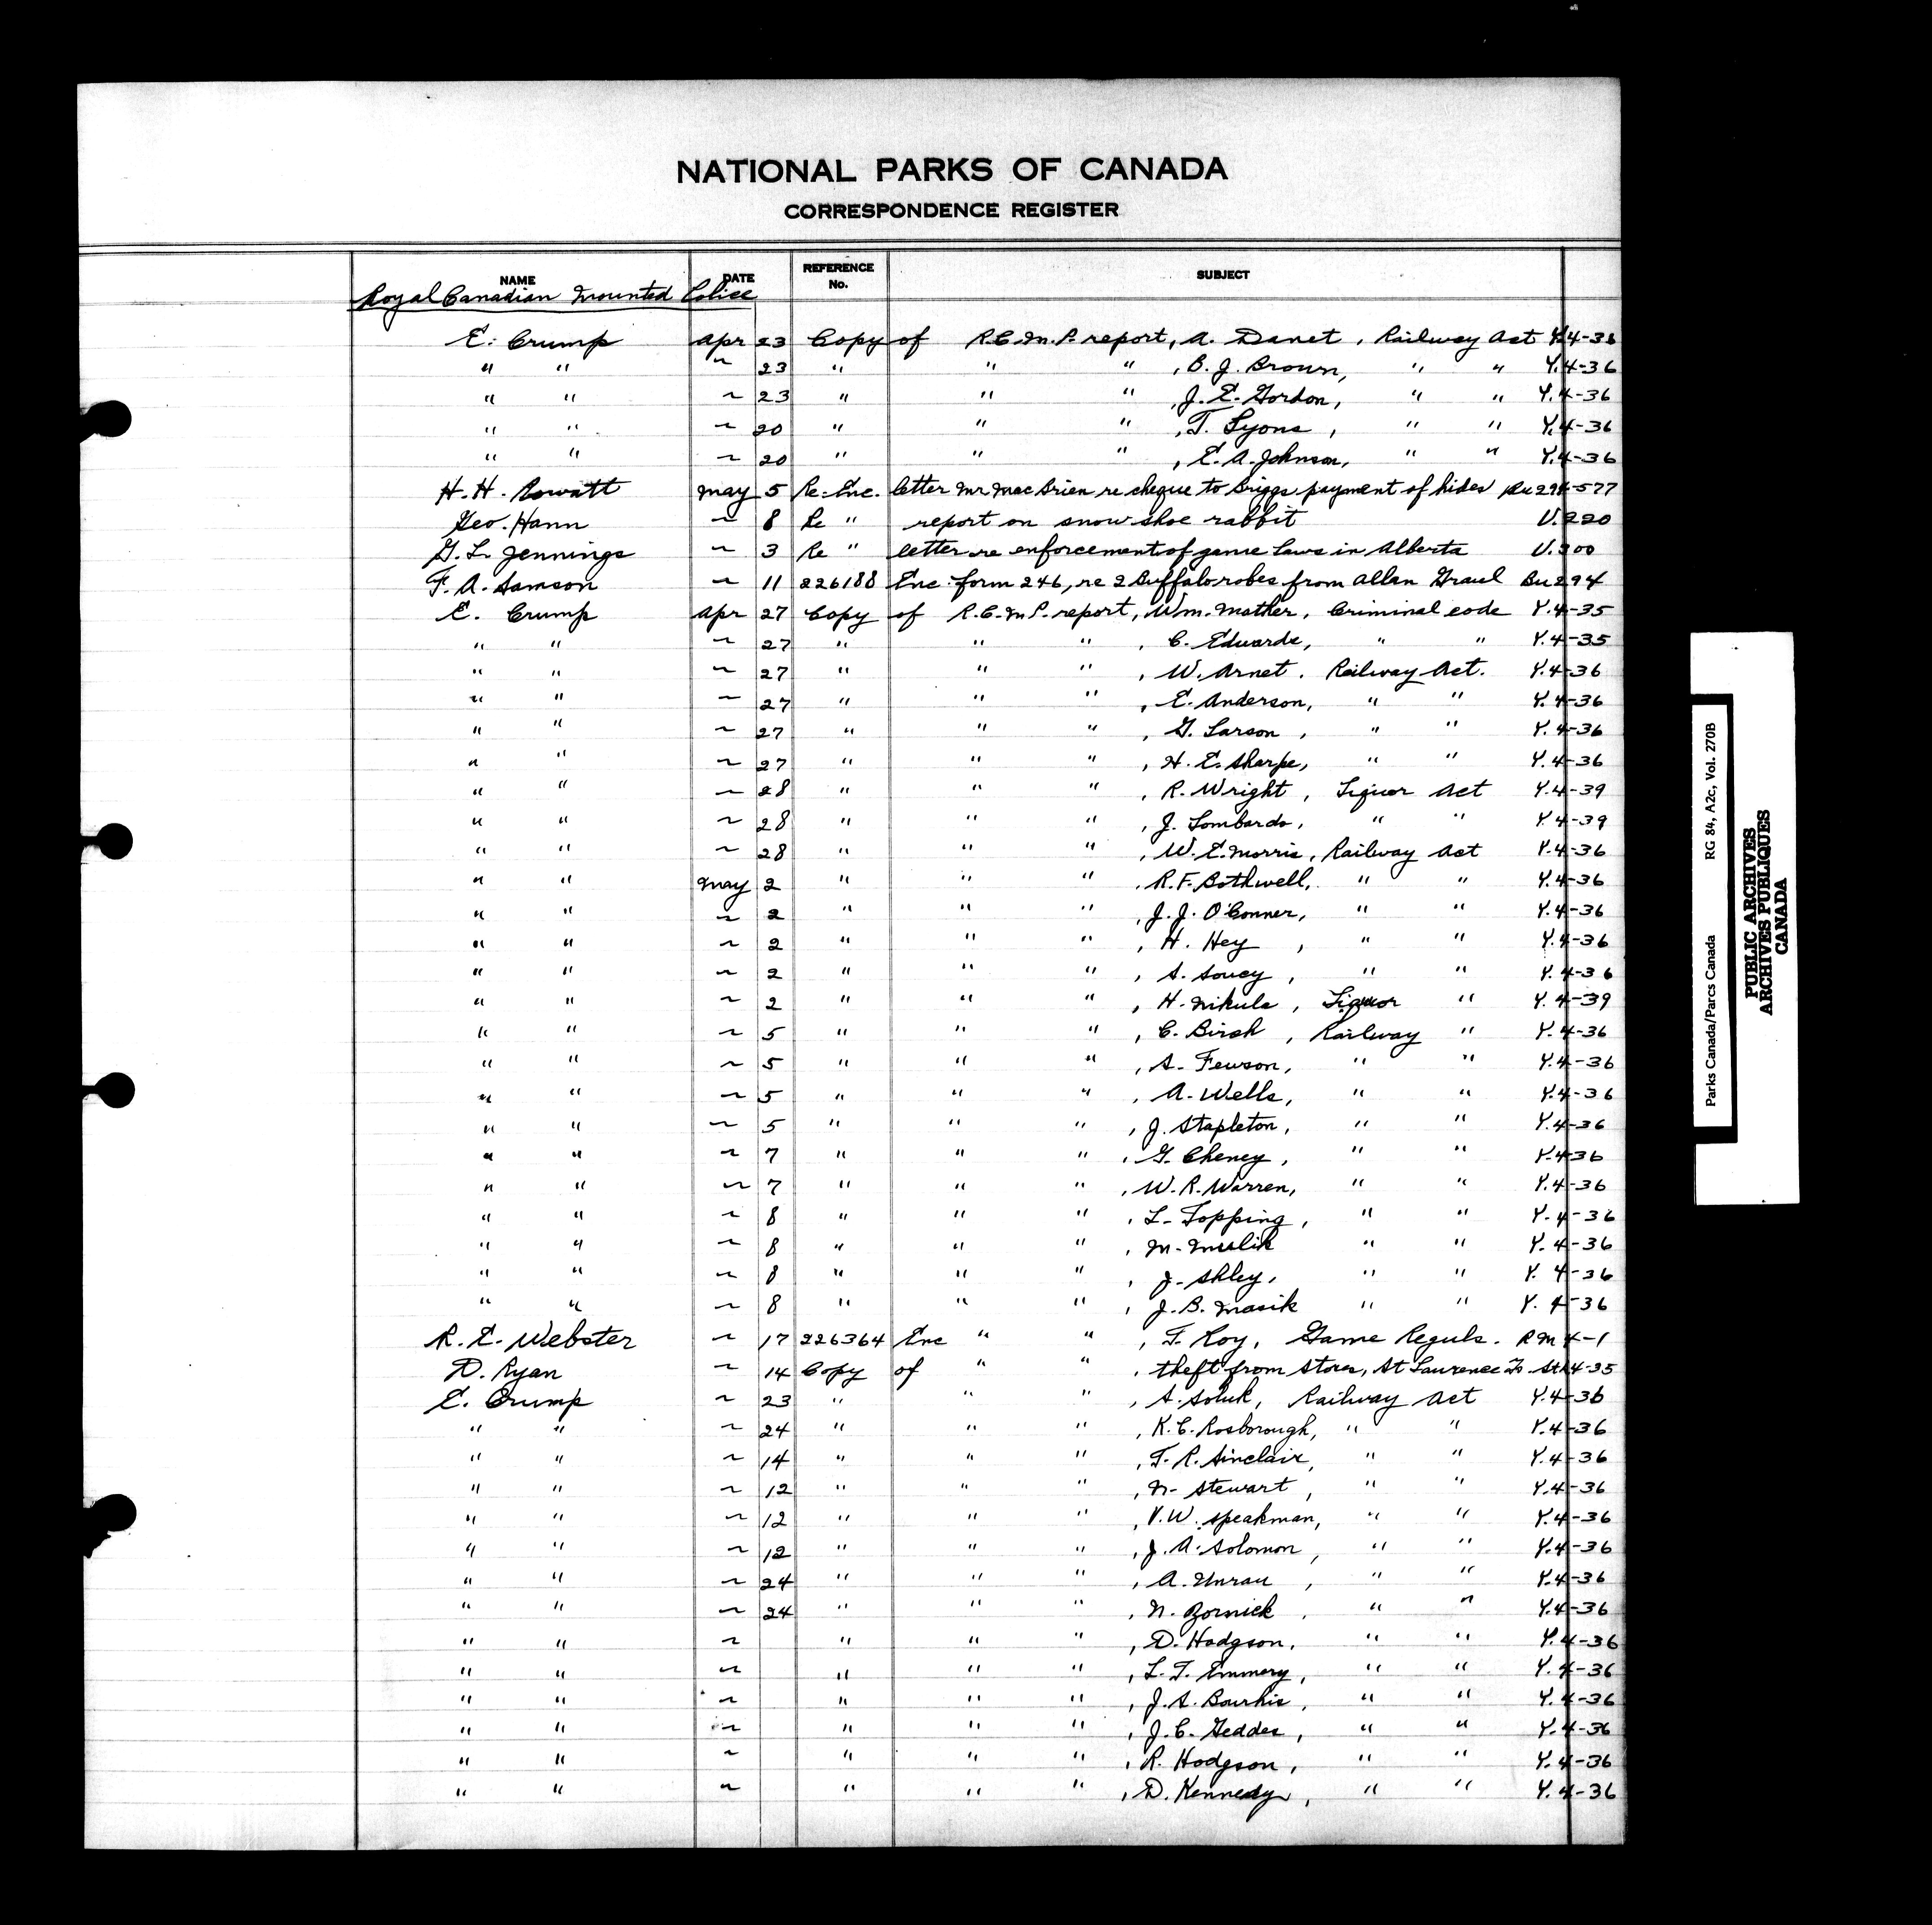 NATIONAL PARKS OF CANADA
CORRESPONDENCE REGISTER
NAME DATE REFERENCE No. SUBJECT
Royal Canadian Mounted Police
E. Crump Apr 23 Copy of R.C.M.P. report, A. Danet, Railway Act Y.4-36
" " ~ 23 " " " , B. J. Brown, " " Y.4-36
" " ~ 23 " " " , J. E. Gordon, " " Y.4-36
" " ~ 20 " " " , T. Lyons, " " Y.4-36
" " ~ 20 " " " , E. A. Johnson, " " Y.4-36
H. H. Rowatt May 5 Re-Enc. letter Mr MacBrien re cheque to Briggs payment of hides Bu294-577
Geo. Hann ~ 8 Re " report on snow shoe rabbit U.220
G. L. Jennings ~ 3 Re " letter re enforcement of game laws in Alberta U.300
F. A. Samson ~ 11 226188 Enc. form 246, re 2 Buffalo robes from Allan Graul Bu294
E. Crump Apr 27 Copy of R.C.M.P. report, Wm. Mather, Criminal code Y.4-35
" " ~ 27 " " " , C. Edwards, " " Y.4-35
" " ~ 27 " " " , W. Arnet, Railway Act. Y.4-36
" " ~ 27 " " " , E. Anderson, " " Y.4-36
" " ~ 27 " " " , G. Larson, " " Y.4-36
" " ~ 27 " " " , H. E. Sharpe, " " Y.4-36
" " ~ 28 " " " , R. Wright, Liquor Act Y.4-39
" " ~ 28 " " " , J. Lombardo, " " Y.4-39
" " ~ 28 " " " , W. E. Morris, Railway Act Y.4-36
" " May 2 " " " , R. F. Bothwell, " " Y.4-36
" " ~ 2 " " " , J. J. O'Conner, " " Y.4-36
" " ~ 2 " " " , H. Hey, " " Y.4-36
" " ~ 2 " " " , S. Soucy, " " Y.4-36
" " ~ 2 " " " , H. Nikula, Liquor " Y.4-39
" " ~ 5 " " " , C. Birch, Railway " Y.4-36
" " ~ 5 " " " , S. Fewson, " " Y.4-36
" " ~ 5 " " " , A. Wells, " " Y.4-36
" " ~ 5 " " " , J. Stapleton, " " Y.4-36
" " ~ 7 " " " , G. Cheney, " " Y.4-36
" " ~ 7 " " " , W. R. Warren, " " Y.4-36
" " ~ 8 " " " , L. Topping, " " Y.4-36
" " ~ 8 " " " , M. " " Y.4-36
" " ~ 8 " " " , J. Shley, " " Y.4-36
" " ~ 8 " " " , J. B. Masik " " Y.4-36
R. E. Webster ~ 17 226364 Enc " " , F. Roy, Game Reguls. RM4-1
D. Ryan ~ 14 Copy of " " , theft from stores, St Laurence Is. 4-35
E. Crump ~ 23 " " " , S. Soluk, Railway Act Y.4-36
" " ~ 24 " " " , K. C. Rosborough, " " Y.4-36
" " ~ 14 " " " , F. R. Sinclair, " " Y.4-36
" " ~ 12 " " " , N. Stewart, " " Y.4-36
" " ~ 12 " " " , V. W. Speakman, " " Y.4-36
" " ~ 12 " " " , J. A. Solomon, " " Y.4-36
" " ~ 24 " " " , A. Unrau, " " Y.4-36
" " ~ 24 " " " , N. Zornick, " " Y.4-36
" " ~ " " " , D. Hodgson, " " Y.4-36
" " ~ " " " , L. T. Emmery, " " Y.4-36
" " ~ " " " , J. S. Bourhis, " " Y.4-36
" " ~ " " " , J. C. Geddes, " " Y.4-36
" " ~ " " " , R. Hodgson, " " Y.4-36
" " ~ " " " , D. Kennedy, " " Y.4-36
Parks Canada/Parcs Canada RG 84, A2c, Vol. 270B
PUBLIC ARCHIVES
ARCHIVES PUBLIQUES
CANADA